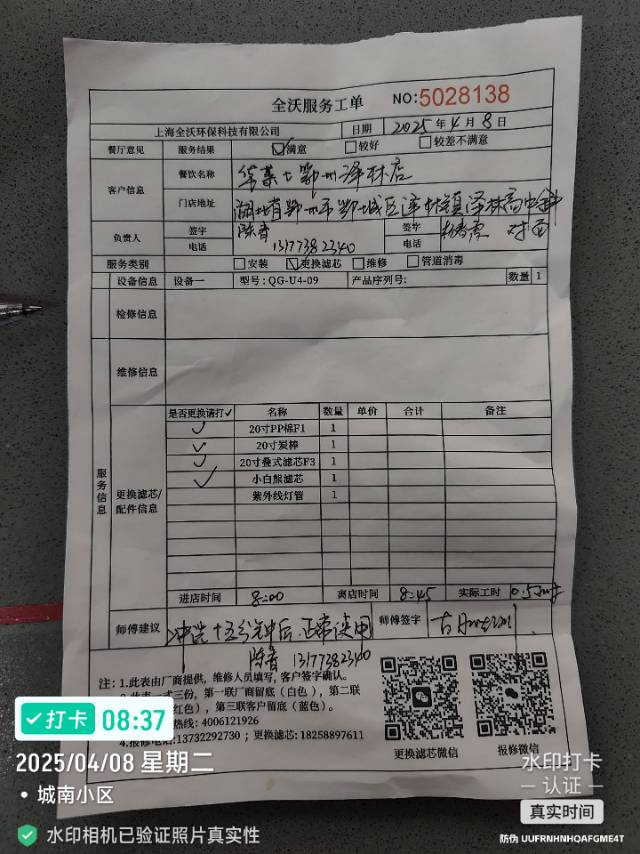 全沃服务工单 NO:5028138
上海全沃环保科技有限公司 日期 2025年4月8日
餐厅意见 服务结果 满意 较好 较差不满意
客户信息 餐饮名称 华莱士鄂州泽林店
门店地址 湖北省鄂州市鄂城区泽林镇泽林高中斜
对面
负责人 签字 陈香 签字
电话 13177382340 电话
服务类别 安装 更换滤芯 维修 管道消毒
设备信息 设备一 型号:QG-U4-09 产品序列号: 数量 1
检修信息
维修信息
服务信息
更换滤芯/配件信息
是否更换请打✓ 名称 数量 单价 合计 备注
✓ 20寸PP棉F1 1
✓ 20寸炭棒 1
✓ 20寸叠式滤芯F3 1
✓ 小白熊滤芯 1
紫外线灯管 1
进店时间 8:00 离店时间 8:45 实际工时
师傅建议 冲洗十五分钟后正常使用 师傅签字
陈香 13177382340
注:1.此表由厂商提供,维修人员填写,客户签字确认。
三份,第一联厂商留底(白色),第二联
红色),第三联客户留底(蓝色)。
热线:4006121926
4.报修电话:13732292730;更换滤芯:18258897611
更换滤芯微信 报修微信
打卡 08:37
2025/04/08 星期二
城南小区
水印相机已验证照片真实性
水印打卡
认证
真实时间
防伪 UUFRNHNHQAFGME4T